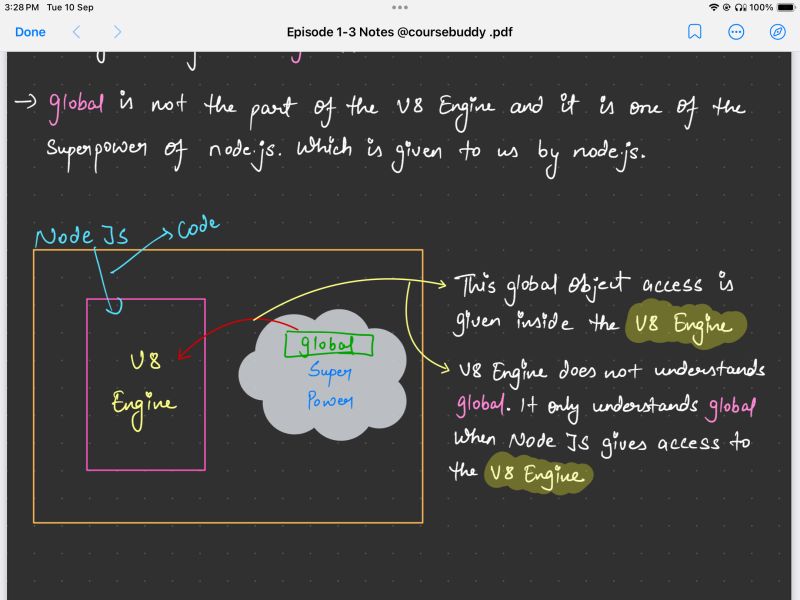 3:28 PM Tue 10 Sep
100%
Done
Episode 1-3 Notes @coursebuddy .pdf
→ global is not the part of the V8 Engine and it is one of the
Superpower of node.js. Which is given to us by node.js.
Node Js
Code
V8
Engine
global
Super
Power
This global object access is
given inside the V8 Engine
V8 Engine does not understands
global. It only understands global
When Node JS gives access to
the V8 Engine